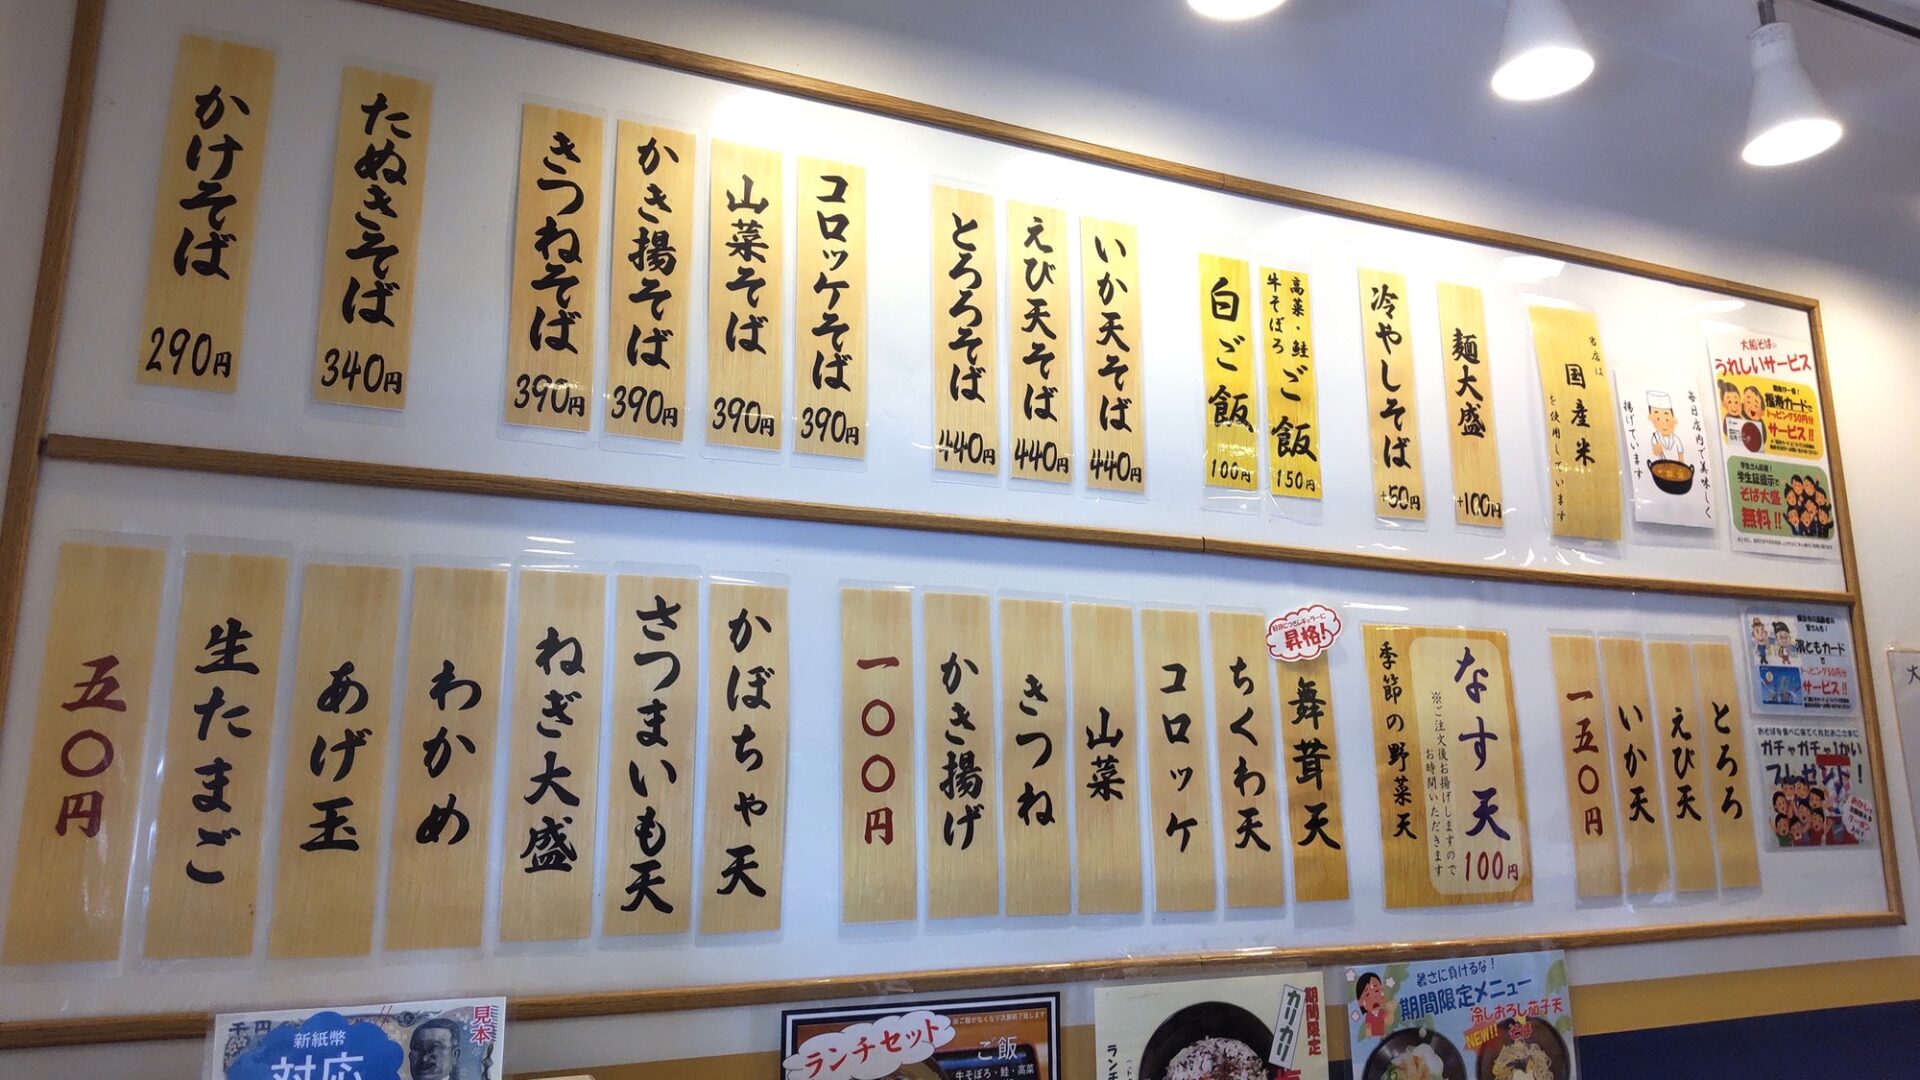 かけそば
290円
たぬきそば
340円
きつねそば
390円
かき揚そば
390円
山菜そば
390円
コロッケそば
390円
とろろそば
440円
えび天そば
440円
いか天そば
440円
白ご飯
100円
高菜・鮭
牛そぼろ
ご飯
150円
冷やしそば
+50円
麺大盛
+100円
当店は
国産米
を使用しています
毎日店内で美味しく
揚げています
大船そばの
うれしいサービス
福寿カードで
トッピング50円分
サービス!!
学生さん応援!
学生証提示で
そば大盛
無料!!
五〇円
生たまご
あげ玉
わかめ
ねぎ大盛
さつまいも天
かぼちゃ天
一〇〇円
かき揚げ
きつね
山菜
コロッケ
ちくわ天
好評につきレギュラーに
昇格!
舞茸天
季節の野菜天
なす天
※ご注文後お揚げしますので
お時間いただきます
100円
一五〇円
いか天
えび天
とろろ
濱ともカード
で
トッピング50円分
サービス!!
おそばを食べに来てくれたお子さまに
ガチャガチャ1かい
プレゼント!
千円
新紙幣
対応
見本
ランチセット
※ご飯がなくなり次第終了致します
ご飯
牛そぼろ・鮭・高菜
期間限定
カリカリ
暑さに負けるな!
期間限定メニュー
冷しおろし茄子天
そば
NEW!!